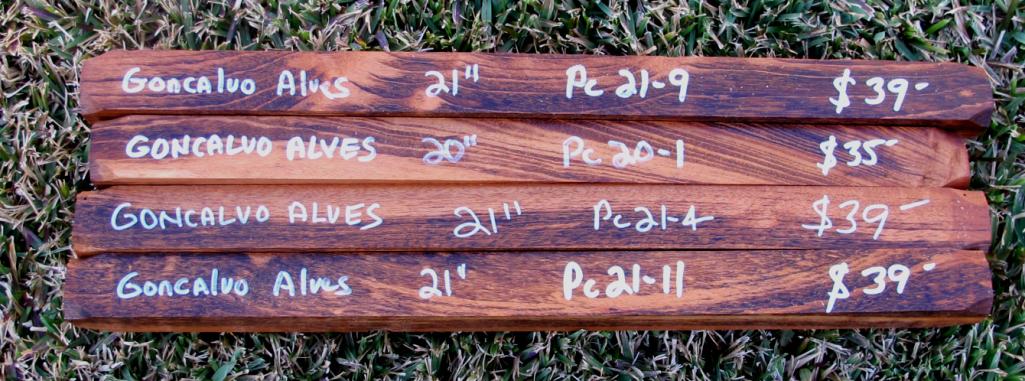 Goncalvo Alves 21" Pc 21-9 $39-
GONCALVO ALVES 20" Pc 20-1 $35-
GONCALVO ALVES 21" Pc 21-4 $39-
Goncalvo Alves 21" Pc 21-11 $39-